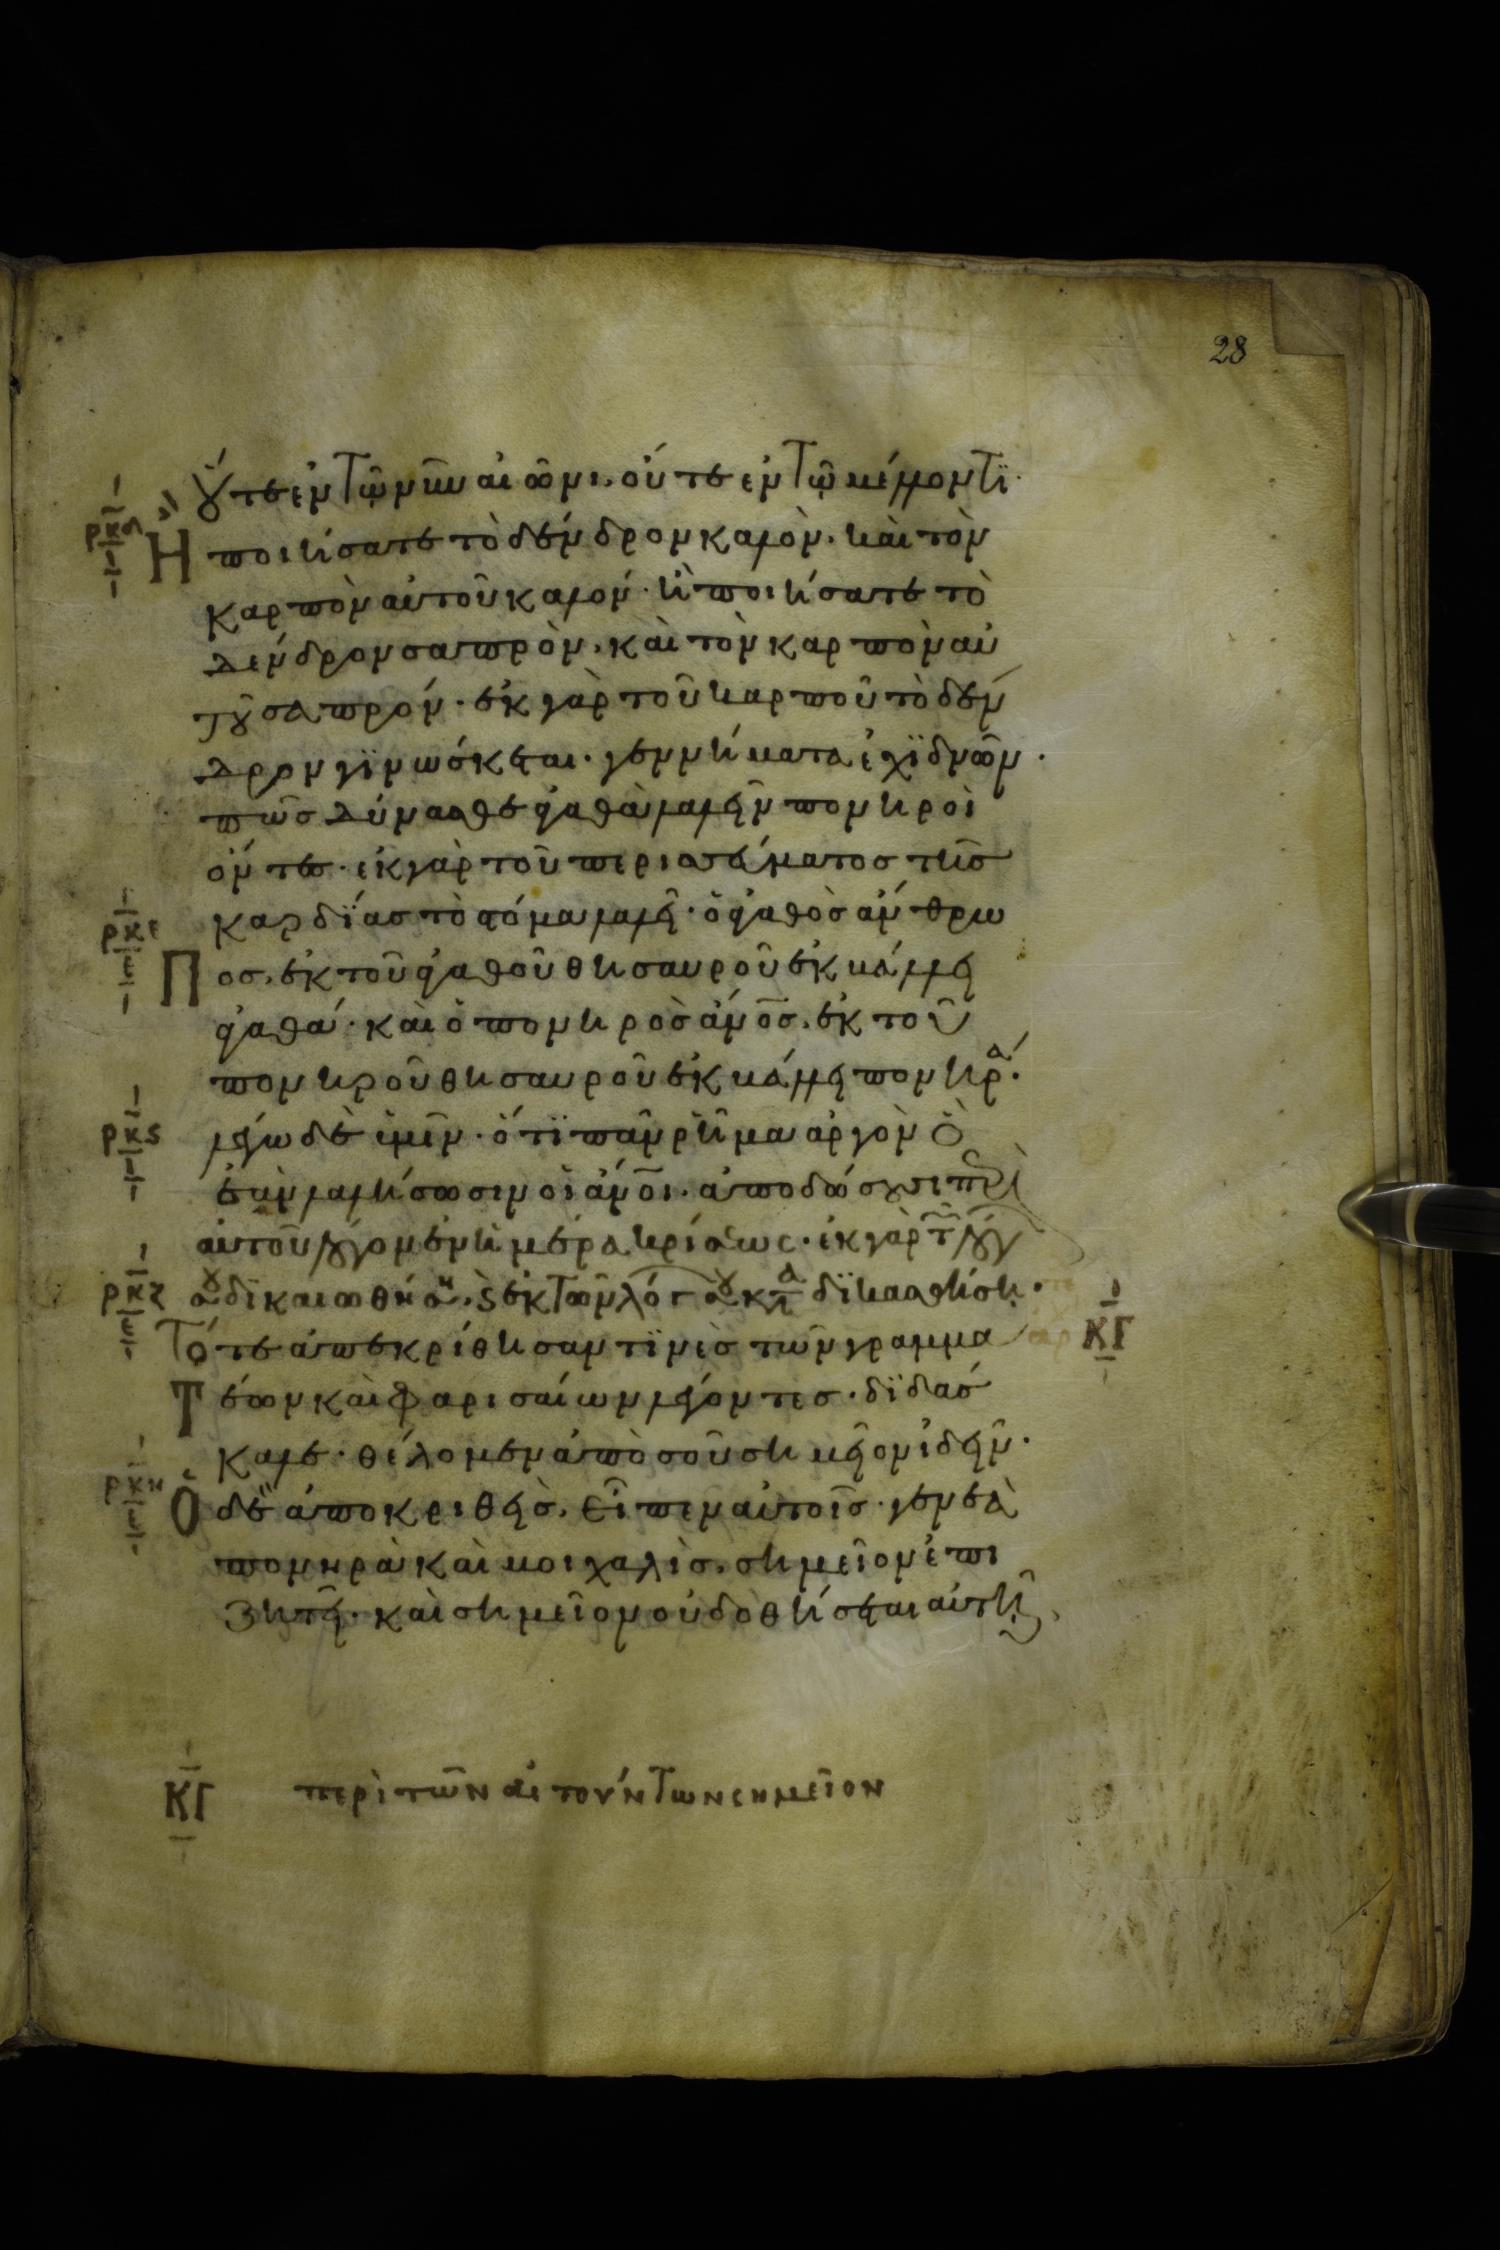 28
οὔτε ἐν τῶ νῦν αἰῶνι, οὔτε ἐν τῶ μέλλοντϊ·
ρκδ Ἢ ποιήσατε τὸ δένδρον καλὸν, καὶ τὸν
καρπὸν αὐτοῦ καλόν· ἢ ποιήσατε τὸ
δένδρον σαπρὸν, καὶ τὸν καρπὸν αὐ
τοῦ σαπρόν· ἐκ γὰρ τοῦ καρποῦ τὸ δέν
δρον γϊνώσκεται· γεννήματα ἐχϊδνῶν·
πῶσ δύνασθε ἀγαθὰ λαλεῖν πονηροὶ
ὄντεσ· ἐκ γὰρ τοῦ περισσέματοσ τῆσ
καρδΐασ τὸ στόμα λαλεῖ· ὁ ἀγαθὸσ ἄνθρω
ρκε Π οσ, ἐκ τοῦ ἀγαθοῦ θησαυροῦ ἐκβάλλει
ἀγαθά· καὶ ὁ πονηρὸσ ἄνοσ, ἐκ τοῦ
πονηροῦ θησαυροῦ ἐκβάλλει πονηρά·
ρκς λέγω δὲ ὑμῖν· ὅτϊ πᾶν ῥῆμα ἀργὸν ὃ
ἐὰν λαλήσωσιν οἱ ἄνοι· ἀποδώσουσι περὶ
αὐτοῦ λόγον ἐν ἡμέρα κρίσεως· ἐκ γὰρ τ λόγ
ρκζ σου δικαιωθήση, ϛ ἐκ τῶν λόγ σου κατα δϊκασθήση·
Τότε ἀπεκρίθησαν τϊνὲσ τῶν γραμμα
ΚΓ
Τ έων καὶ φαρισαίων λέγοντεσ· δϊδάσ
καλε· θέλομεν ἀπὸ σοῦ σημεῖον ἰδεῖν·
ρκη Ὁ δὲ ἀποκριθεὶσ, εἶπεν αὐτοῖσ· γενεὰ
πονηρὰ καὶ μοιχαλὶσ, σημεῖον ἐπι
ζητεῖ· καὶ σημεῖον οὐ δοθήσεται αὐτῆ,
ΚΓ περὶ τῶν αἰτούντων σημεῖον